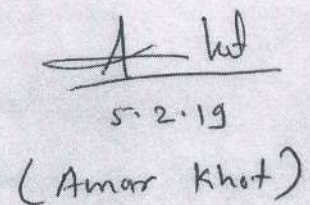 A Khot
5.2.19
(Amar Khot)